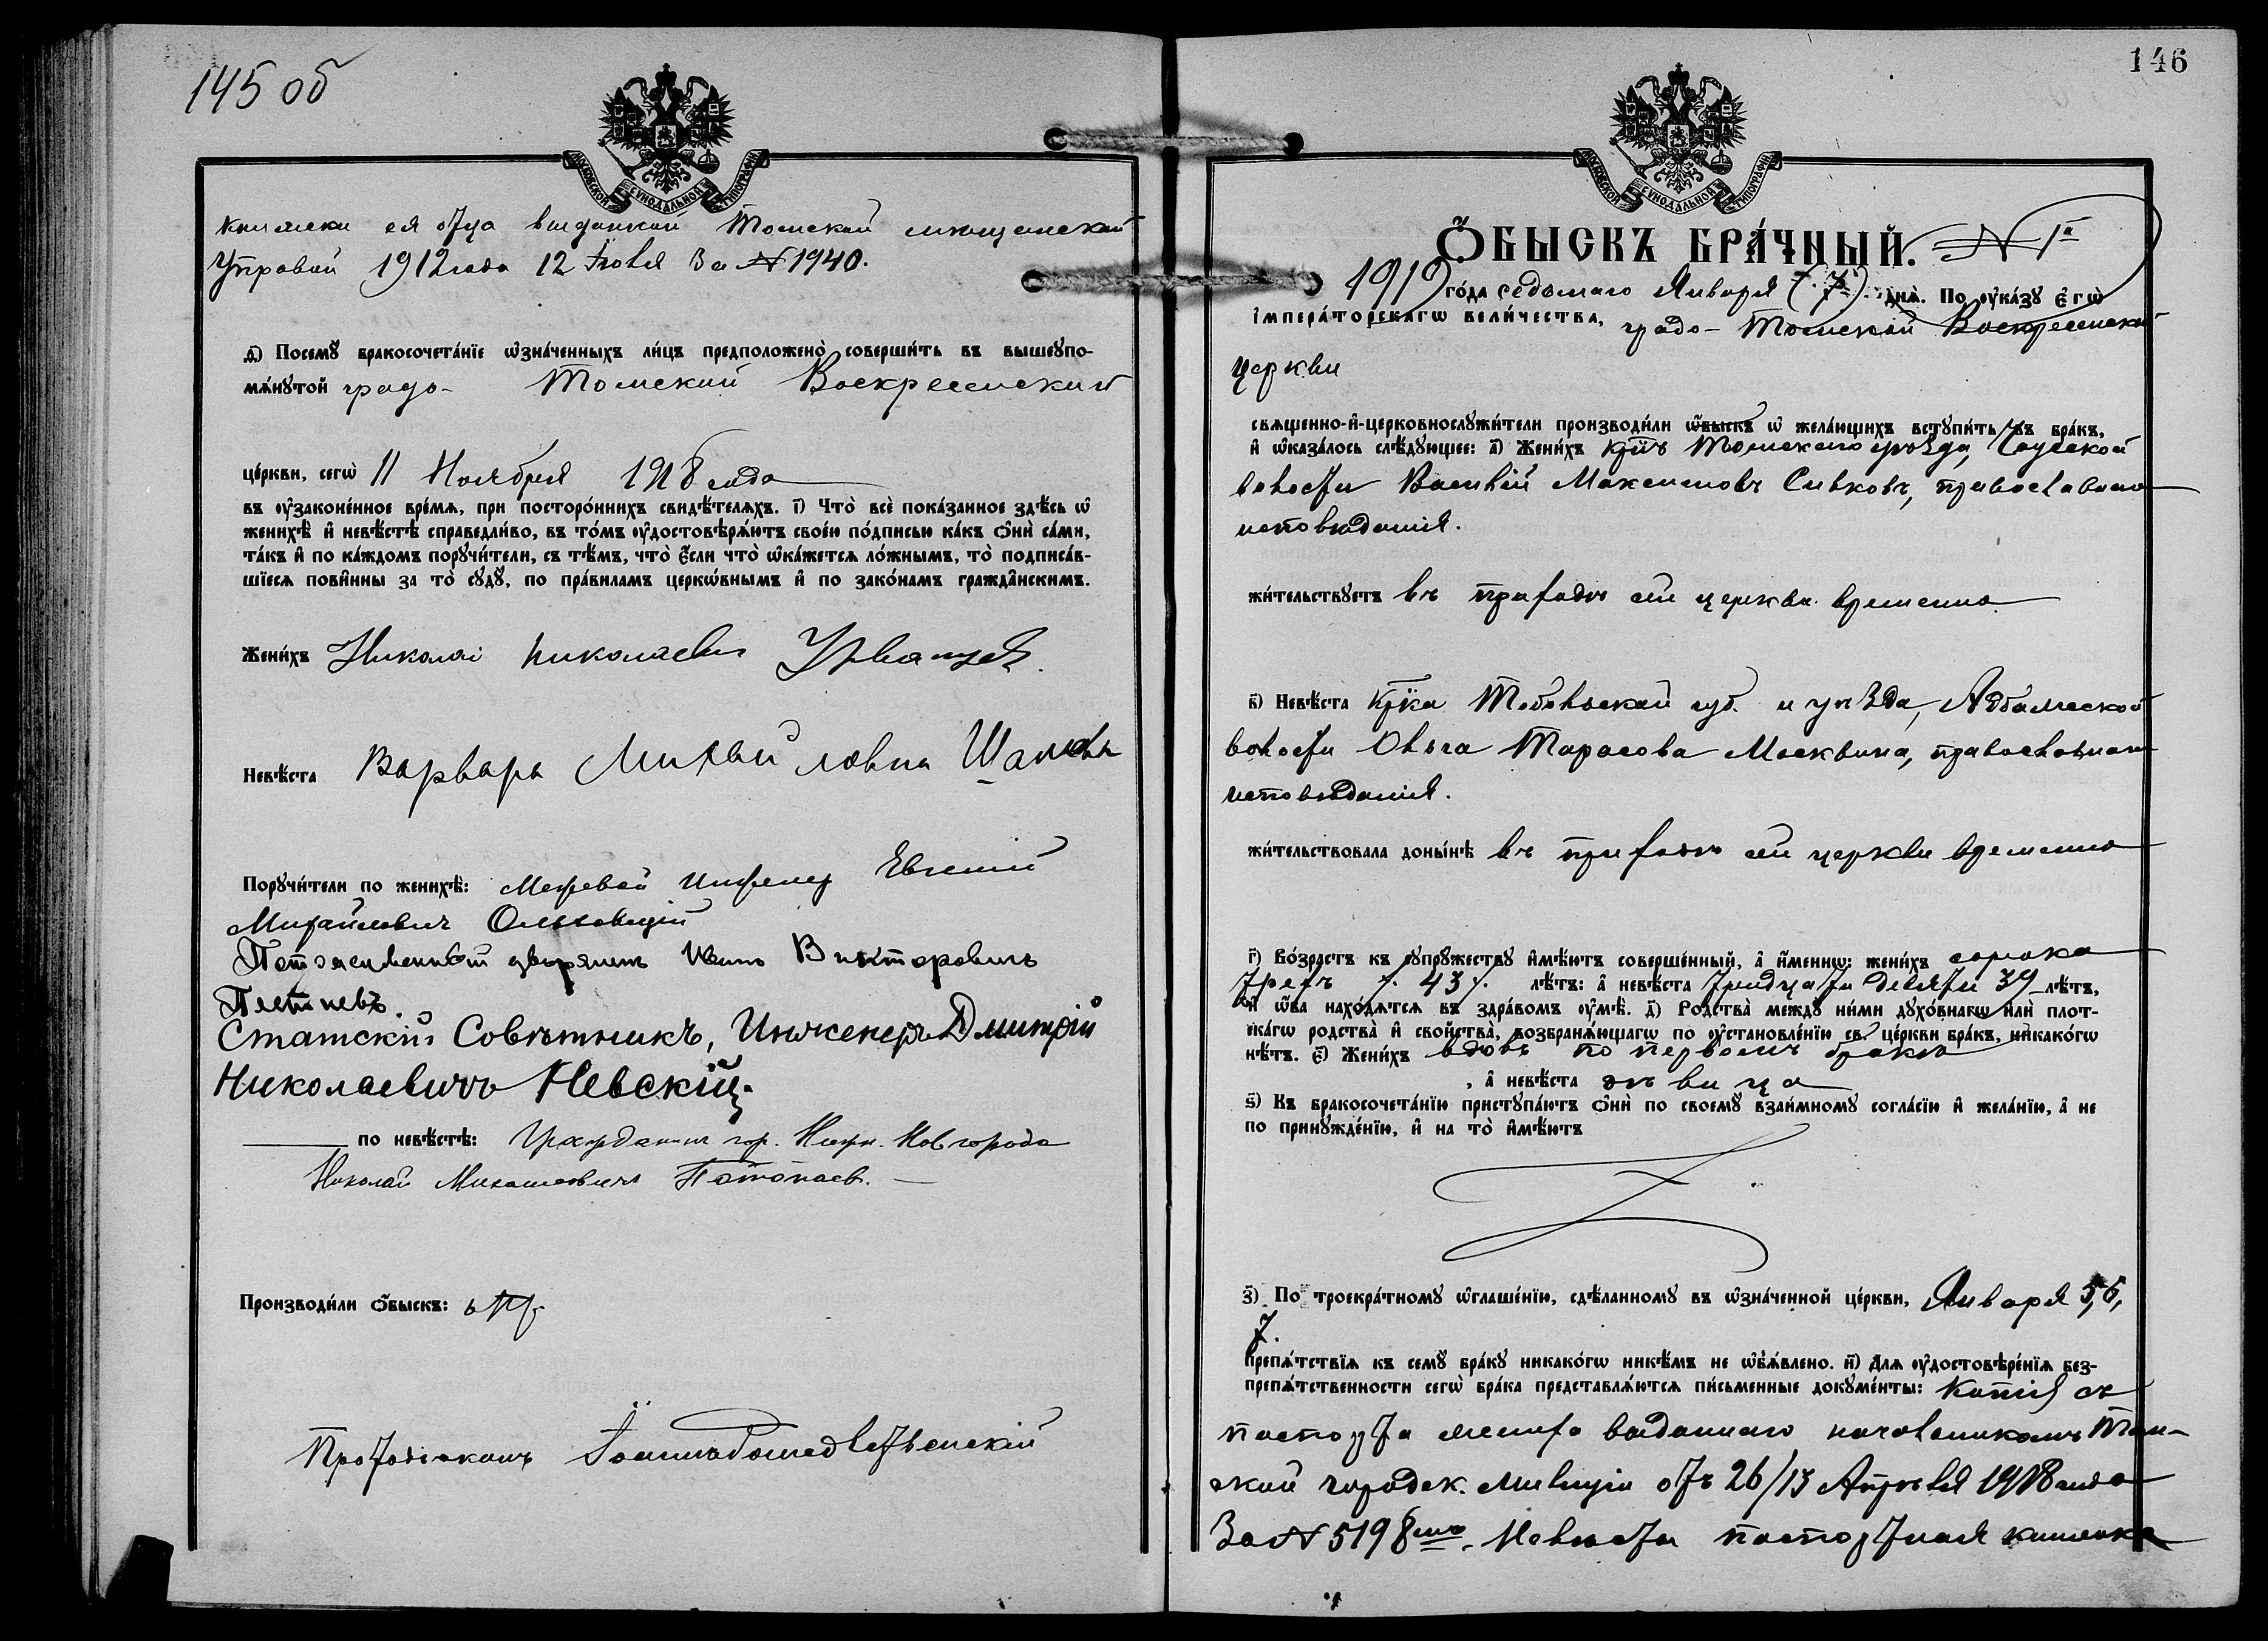 145 об
МОСКОВСКОЙ СѴНОДАЛЬНОЙ ТИПОГРАФІИ
книжки ея отца выданной Томской мѣщанской
Управой 1912 года 12 Іюля за № 1940.
д҃) Посемꙋ̀ бракосочета́нїе ѡ҆зна́ченныхъ ли́цъ предположено̀ соверши́ть въ вышеꙋпо-
мѧ́нꙋтой градо- Томской Воскресенской
це́ркви, сегѡ̀ 11 Ноября 1918 года
въ ᲂу҆законе́нное вре́мѧ, при посторо́ннихъ свидѣ́телѧхъ. і҃) Что̀ всѐ пока́занное здѣ́сь ѡ҆
женихѣ̀ и҆ невѣ́стѣ справедли́во, въ то́мъ ᲂу҆достовѣрѧ́ютъ свое́ю по́дписью ка́къ ѻ҆нѝ са́ми,
та́къ и҆ по ка́ждомъ порꙋчи́тели, съ тѣ́мъ, что̀ є҆́сли что̀ ѡ҆ка́жетсѧ ло́жнымъ, то̀ подписа́в-
шїесѧ пови́нны за то̀ сꙋдꙋ̀, по пра́виламъ церкѡ́внымъ и҆ по зако́намъ гражда̑нскимъ.
Жени́хъ Николай Николаевич Урванцев.
Невѣ́ста Варвара Михайловна Шанова
Порꙋчи́тели по женихѣ̀: Межевой инженер Евгений
Михайлович Ольховицкий
Потомственный дворянинъ Иванъ Викторовичъ
Статскій Совѣтникъ, Инженеръ Дмитрій
Николаевичъ Невскій.
по невѣ́стѣ: Гражданин гор. Нижн. Новгорода
Николай Михайлович Потопаев.
Производи́ли ѻ҆́быскъ:
Протодіаконъ Іоаннъ Рождественскій
146
МОСКОВСКОЙ СѴНОДАЛЬНОЙ ТИПОГРАФІИ
Ѻ҆́БЫСКЪ БРА́ЧНЫЙ. № 1й
1919 го́да седьмаго Января (7) днѧ̀. По ᲂу҆ка́зꙋ є҆гѡ̀
і҆мпера́торскагѡ вели́чества, градо- Томской Воскресенской
церкви
свѧще́нно-и҆-церковнослꙋжи́тели производи́ли ѡ҆́быскъ ѡ҆ жела́ющихъ встꙋпи́ть въ бра́къ,
и҆ ѡ҆каза́лось слѣ́дꙋющее: а҃) Жени́хъ кр-нъ Томскаго уѣзда, Чаусской
волости Василій Максимовъ Сивковъ, православнаго
исповѣданія.
жи́тельствꙋетъ въ приходѣ сей церкви временно
в҃) Невѣ́ста кр-ка Тобольской губ. и уѣзда, Абалакской
волости Ольга Тарасова Москвина, православнаго
исповѣданія.
жи́тельствовала доны́нѣ въ приходѣ сей церкви временно
г҃) Во́зрастъ къ сꙋпрꙋ́жествꙋ и҆мѣ́ютъ соверше́нный, а҆ и҆́менно: жени́хъ сорока
трехъ 43 лѣ́тъ: а҆ невѣ́ста тридцати девяти 39 лѣ́тъ,
и҆ ѻ҆́ба нахо́дѧтсѧ въ здра́вомъ ᲂу҆мѣ̀. д҃) Родства̀ междꙋ̀ ни́ми дꙋхо́внагѡ и҆лѝ плот-
ска́гѡ родства̀ и҆ сво́йства, возбранѧ́ющагѡ по ᲂу҆становле́нїю св. це́ркви бра́къ, никако́гѡ
нѣ́тъ. є҃) Жени́хъ вдовъ по первомъ бракѣ
, а҆ невѣ́ста дѣвица
ѕ҃) Къ бракосочета́нїю пристꙋпа́ютъ ѻ҆нѝ по своемꙋ̀ взаи́мномꙋ согла́сїю и҆ жела́нїю, а҆ не
по принꙋжде́нїю, и҆ на то̀ и҆мѣ́ютъ
з҃) По троекра́тномꙋ ѡ҆глаше́нїю, сдѣ́ланномꙋ въ ѡ҆зна́ченной це́ркви, Января 5, 6,
7.
препѧ́тствїѧ къ семꙋ̀ бра́кꙋ никако́гѡ никѣ́мъ не ѡ҆б̾ѧ́влено. и҃) Длѧ ᲂу҆достовѣре́нїѧ без-
препѧ́тственности сегѡ̀ бра́ка представлѧ́ютсѧ пи́сьменные докꙋме́нты: Копія съ
паспорта жениха выданнаго начальникомъ Том-
ской городск. милиціи отъ 26/13 Апрѣля 1918 года
за № 5198мъ. Невѣсты паспортная книжка